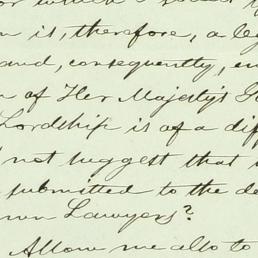 or which I
n is, therefore, a le
and, consequently, en
n of Her Majesty's Go
Lordship is of a diff
not suggest that
submitted to the de
own Lawyers?
Allow me also to